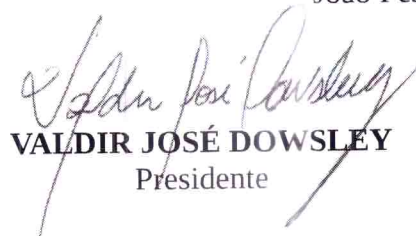 João
Valdir José Dowsley
VALDIR JOSÉ DOWSLEY
Presidente